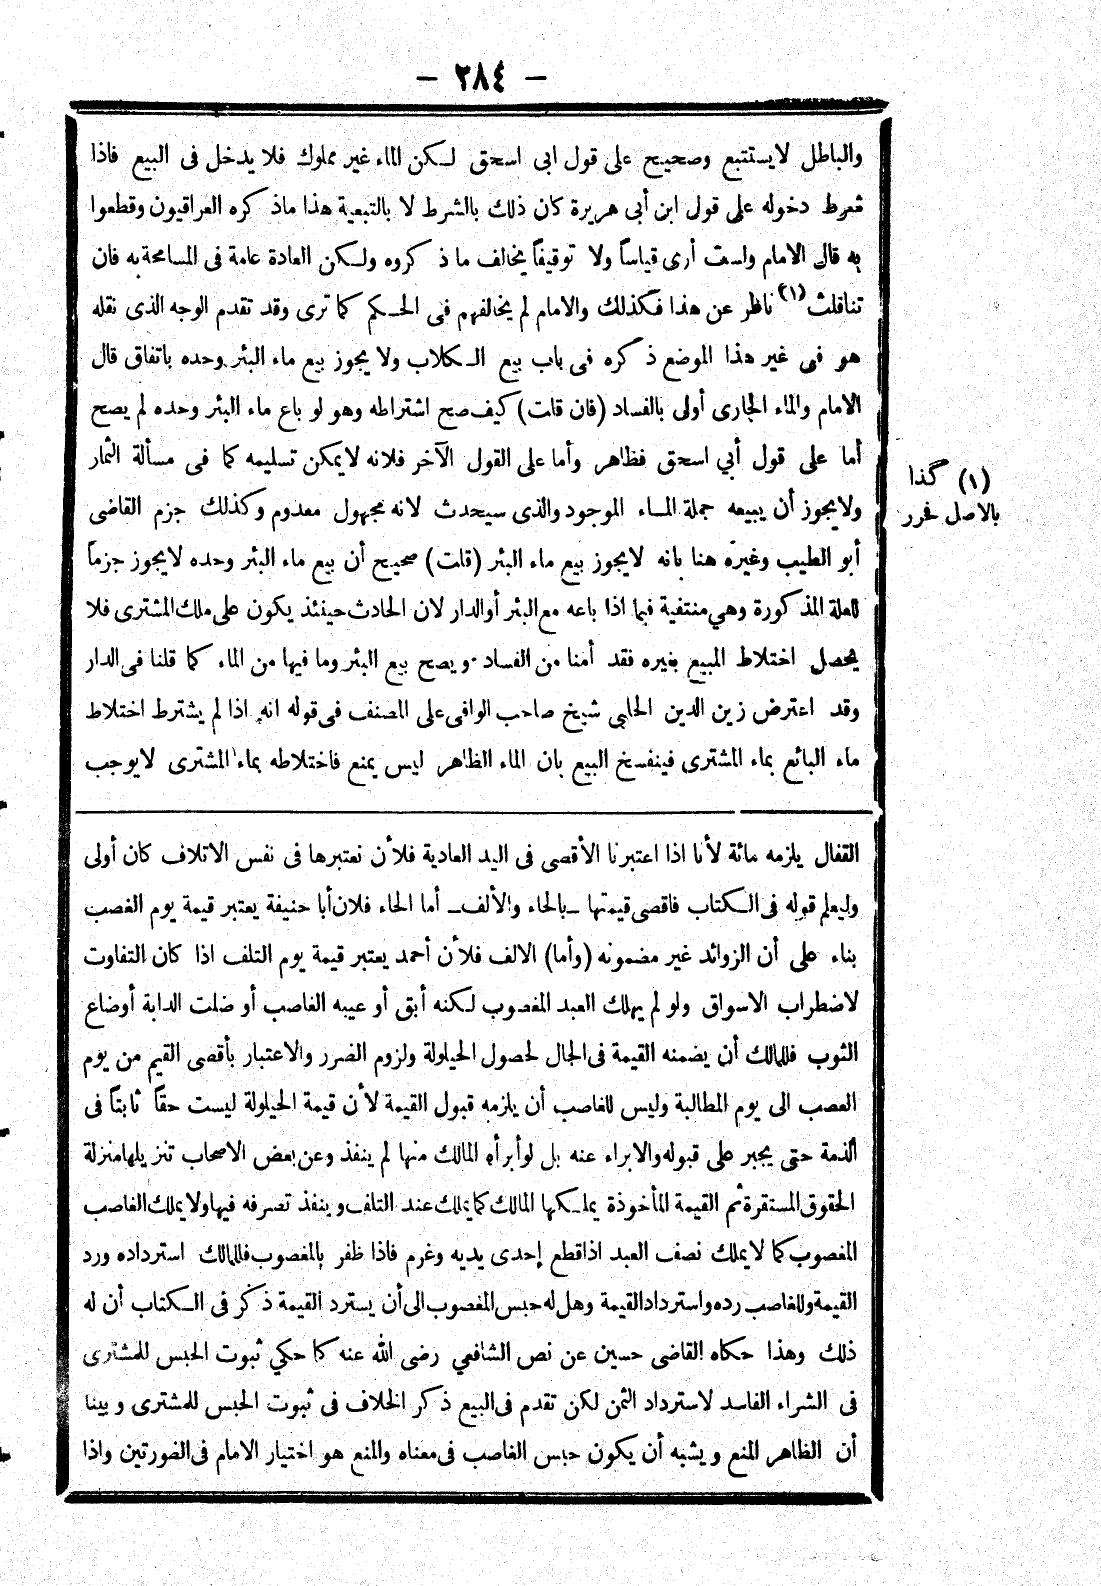 — ٢٨٤ —
والباطل لايستتبع وصحيح على قول ابى اسحق لـكن الماء غير مملوك فلا يدخل فى البيع فاذا
شرط دخوله على قول ابن أبى هريرة كان ذلك بالشرط لا بالتبعية هذا ماذ كره العراقيون وقطعوا
به قال الامام ولست أرى قياساً ولا توقيفاً يخالف ما ذ كروه ولـكن العادة عامة فى المسامحة به فان
تناقلت (١) ناظر عن هذا فـكذلك والامام لم يخالفهم فى الحـكم كما ترى وقد تقدم الوجه الذى نقله
هو فى غير هذا الموضع ذ كره فى باب بيع الـكلاب ولا يجوز بيع ماء البئر وحده باتفاق قال
الامام والماء الجارى أولى بالفساد (فان قلت) كيف صح اشتراطه وهو لو باع ماء البئر وحده لم يصح
أما على قول أبي اسحق فظاهر وأما على القول الآخر فلانه لايمكن تسليمه كما فى مسألة الثمار
ولايجوز أن يبيعه جملة المـاء الموجود والذى سيحدث لانه مجهول معدوم وكذلك جزم القاضى
أبو الطيب وغيره هنا بانه لايجوز بيع ماء البئر (قلت) صحيح أن بيع ماء البئر وحده لايجوز جزماً
للعلة المذ كورة وهي منتفية فيما اذا باعه مع البئر أوالدار لان الحادث حينئذ يكون على ملك المشترى فلا
يحصل اختلاط المبيع بغيره فقد أمنا من الفساد ويصح بيع البئر وما فيها من الماء كما قلنا فى الدار
وقد اعترض زين الدين الحلبي شيخ صاحب الوافى على المصنف فى قوله انه اذا لم يشترط اختلاط
ماء البائع بماء المشترى فينفسخ البيع بان الماء الظاهر ليس يمنع فاختلاطه بماء المشترى لايوجب
(١) كذا
بالاصل فحرر
القفال يلزمه مائة لأنا اذا اعتبرنا الأقصى فى اليد العادية فلأن نعتبرها فى نفس الاتلاف كان أولى
وليعلم قوله فى الـكتاب فاقصى قيمتها ــ بالحاء والألف ــ أما الحاء فلان أبا حنيفة يعتبر قيمة يوم الغصب
بناء على أن الزوائد غير مضمونه (وأما) الالف فلأن أحمد يعتبر قيمة يوم التلف اذا كان التفاوت
لاضطراب الاسواق ولو لم يهلك العبد المغصوب لـكنه أبق أو عيبه الغاصب أو ضلت الدابة أوضاع
الثوب فللمالك أن يضمنه القيمة فى الحال لحصول الحيلولة ولزوم الضرر والاعتبار بأقصى القيم من يوم
الغصب الى يوم المطالبة وليس للغاصب أن يلزمه قبول القيمة لأن قيمة الحيلولة ليست حقاً ثابتاً فى
الذمة حتى يجبر على قبوله والابراء عنه بل لوأبرأه المالك منها لم ينفذ وعن بعض الاصحاب تنزيلها منزلة
الحقوق المستقرة ثم القيمة المأخوذة يملـكها المالك كما يملك عند التلف وينفذ تصرفه فيها ولا يملك الغاصب
المغصوب كما لا يملك نصف العبد اذاقطع إحدى يديه وغرم فاذا ظفر بالمغصوب فللمالك استرداده ورد
القيمة وللغاصب رده واسترداد القيمة وهل له حبس المغصوب الى أن يسترد القيمة ذكر فى الـكتاب أن له
ذلك وهذا حكاه القاضى حسين عن نص الشافعي رضى الله عنه كما حكي ثبوت الحبس للمشترى
فى الشراء الفاسد لاسترداد الثمن لكن تقدم فى البيع ذ كر الخلاف فى ثبوت الحبس للمشترى وبينا
أن الظاهر المنع ويشبه أن يكون حبس الغاصب فى معناه والمنع هو اختيار الامام فى الصورتين واذا